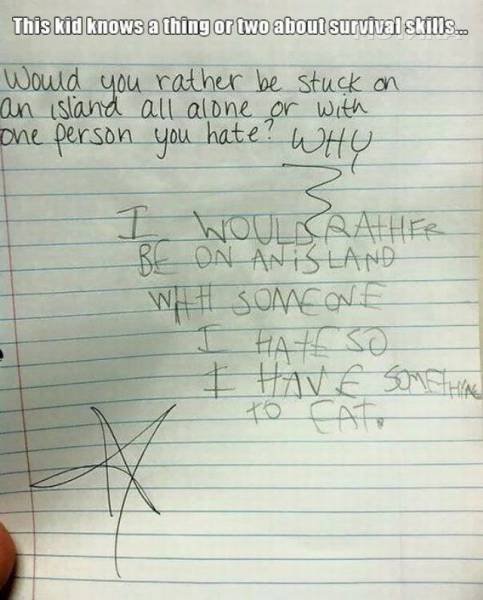 This kid knows a thing or two about survival skills...
Would you rather be stuck on
an island all alone or with
one person you hate? WHY
I WOULD RATHER
BE ON AN iSLAND
WITH SOMEONE
I HATE SO
I HAVE SOMETHING
TO EAT.